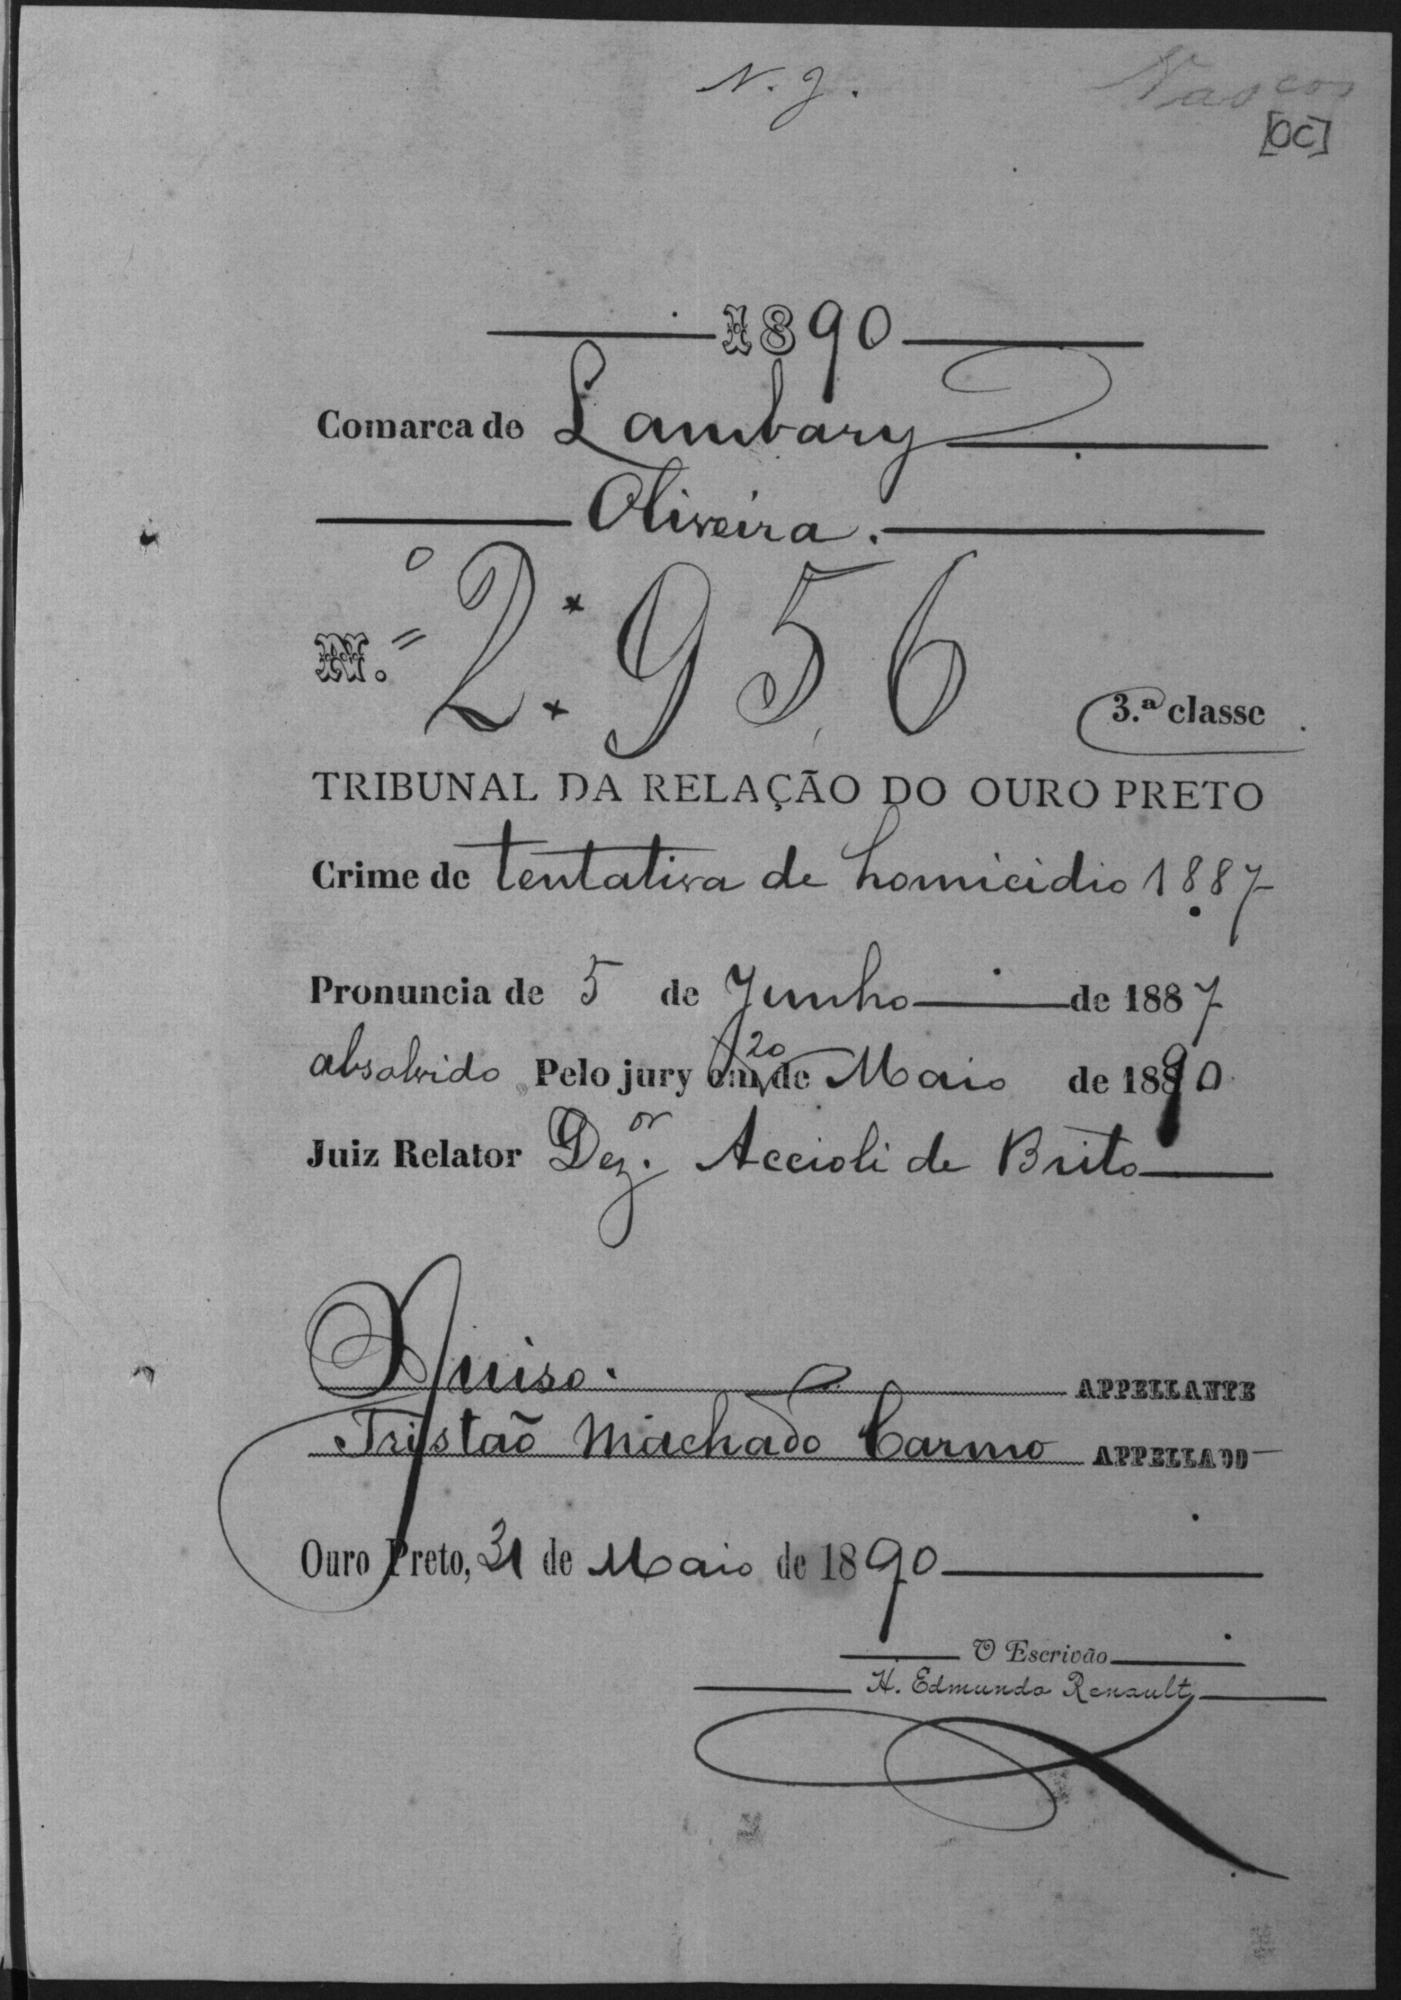 N. J.
[OC]
1890
Comarca do Lambary
Oliveira.
N.º 2.956
3.ª classe
TRIBUNAL DA RELAÇÃO DO OURO PRETO
Crime de tentativa de homicidio 1887
Pronuncia de 5 de Junho de 1887
absolvido Pelo jury em 20 de Maio de 1890
Juiz Relator Dez.or Accioli de Brito
O Juiso. APPELLANTE
Tristaõ Machado Carmo APPELLADO
Ouro Preto, 31 de Maio de 1890
O Escrivão
H. Edmundo Renault